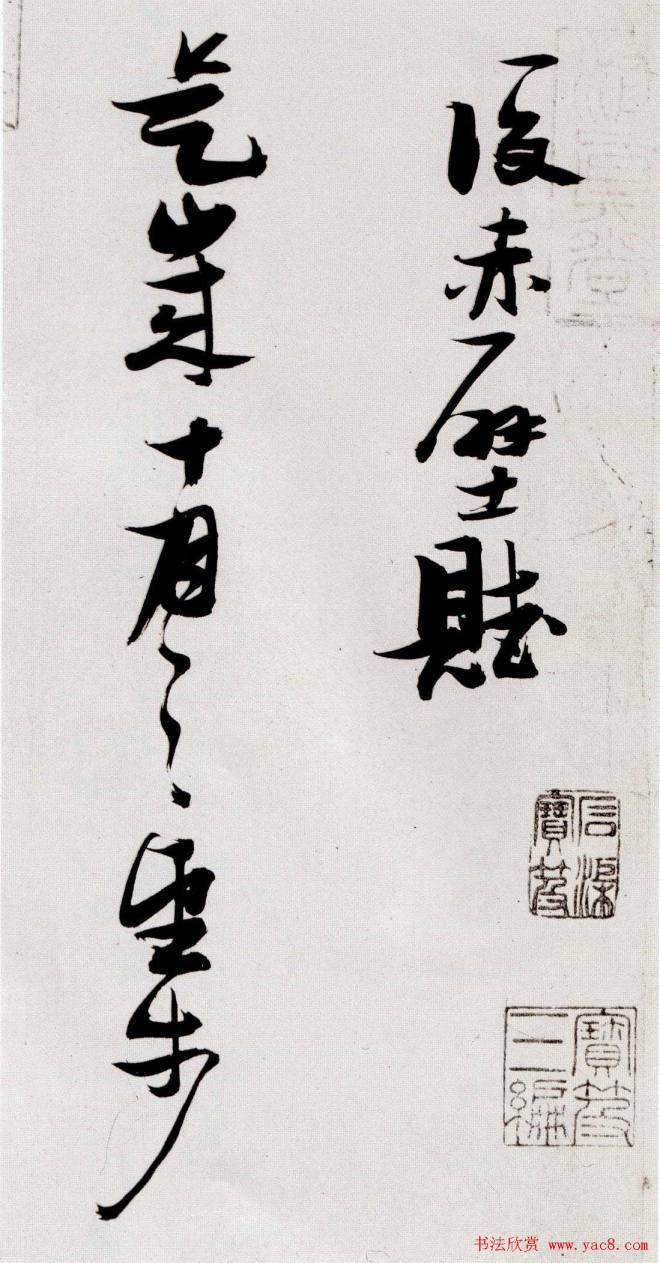 後赤壁賦
石渠
寶笈
寶笈
三編
是歲十月之望步
书法欣赏 www.yac8.com